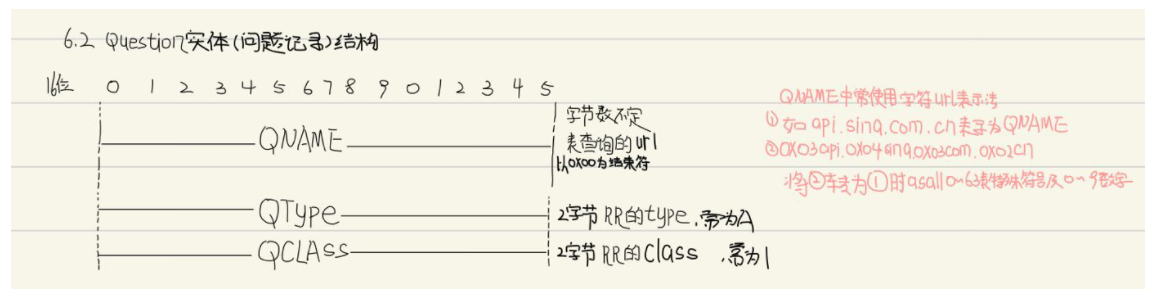 6.2 Question实体(问题记录)结构
16位 0 1 2 3 4 5 6 7 8 9 0 1 2 3 4 5
QNAME
字节数不定
表查询的url
以0x00为结束符
QType
2字节 RR的type,常为A
QCLASS
2字节 RR的Class ,常为1
QNAME中常使用字符url表示法
①如api.sina.com.cn表示为QNAME
②0X03api.0X04ana0X03com.0x02cn
将②转为①时asall0~63表特殊符号及0~9数字